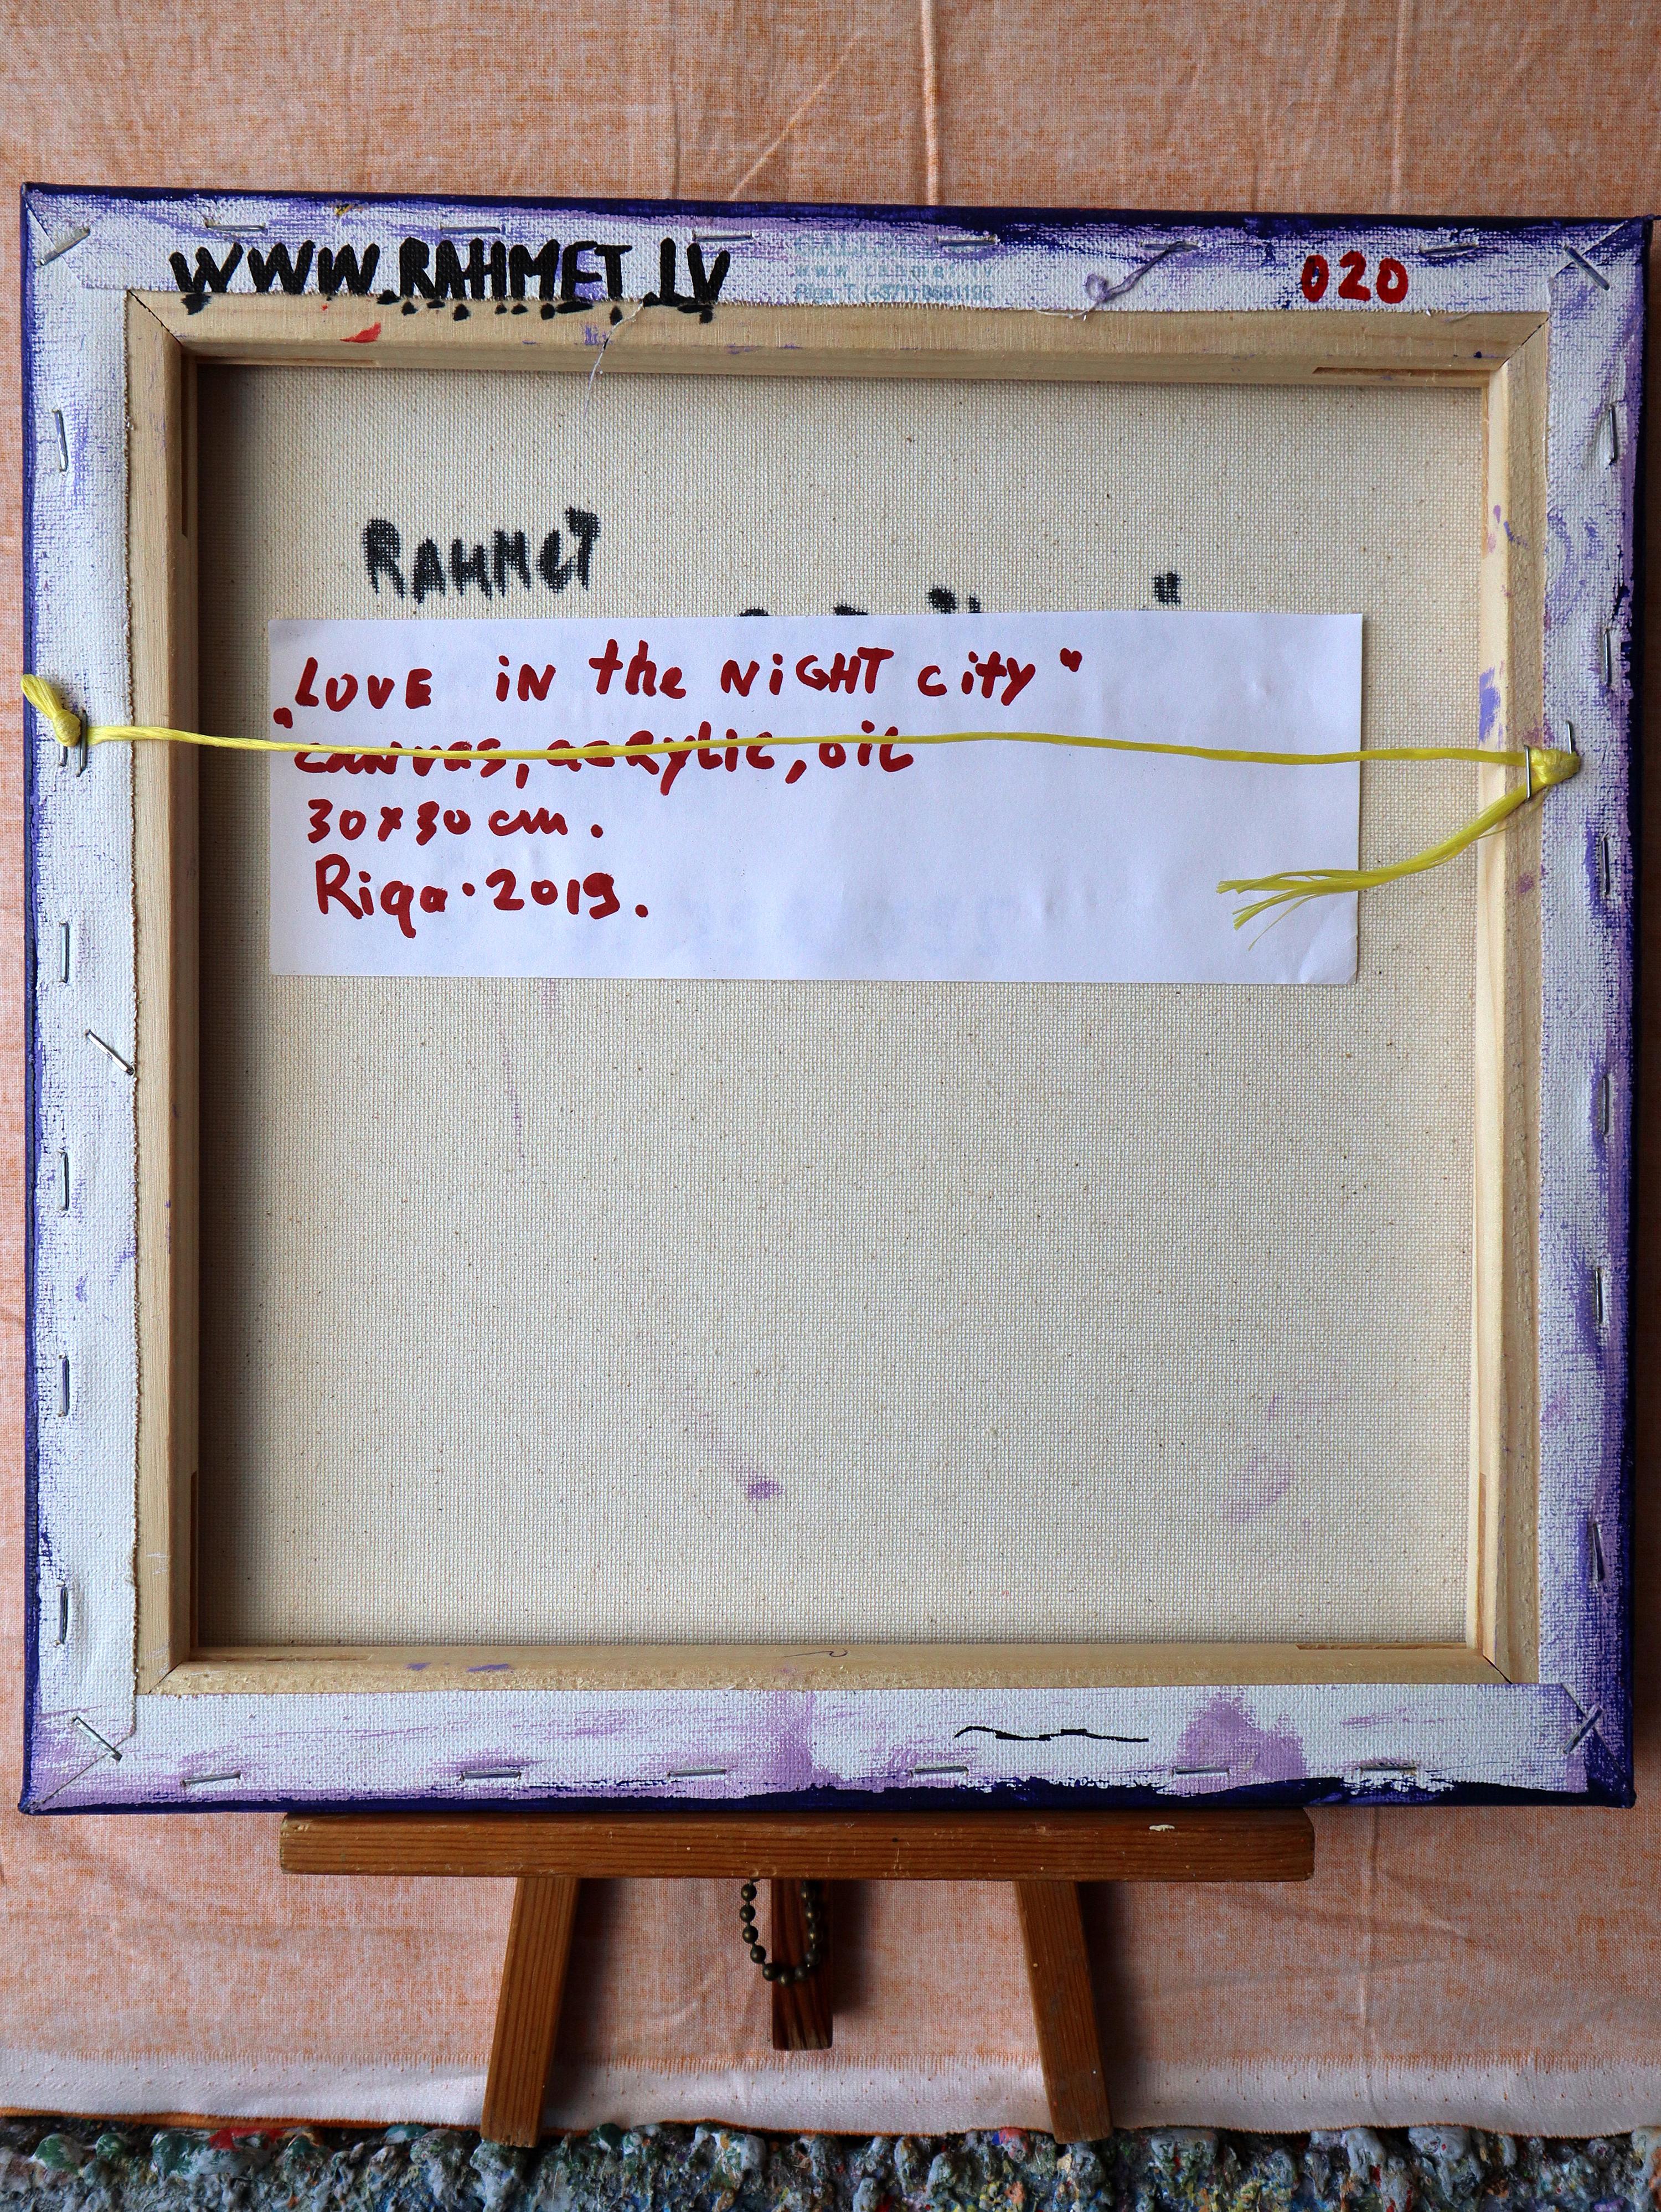 WWW.RAHMET.LV
www.rahmet.lv
020
RAHMET
"LOVE iN the NiGHT city"
canvas, acrylic, oil
30x30 cm.
Riga. 2019.